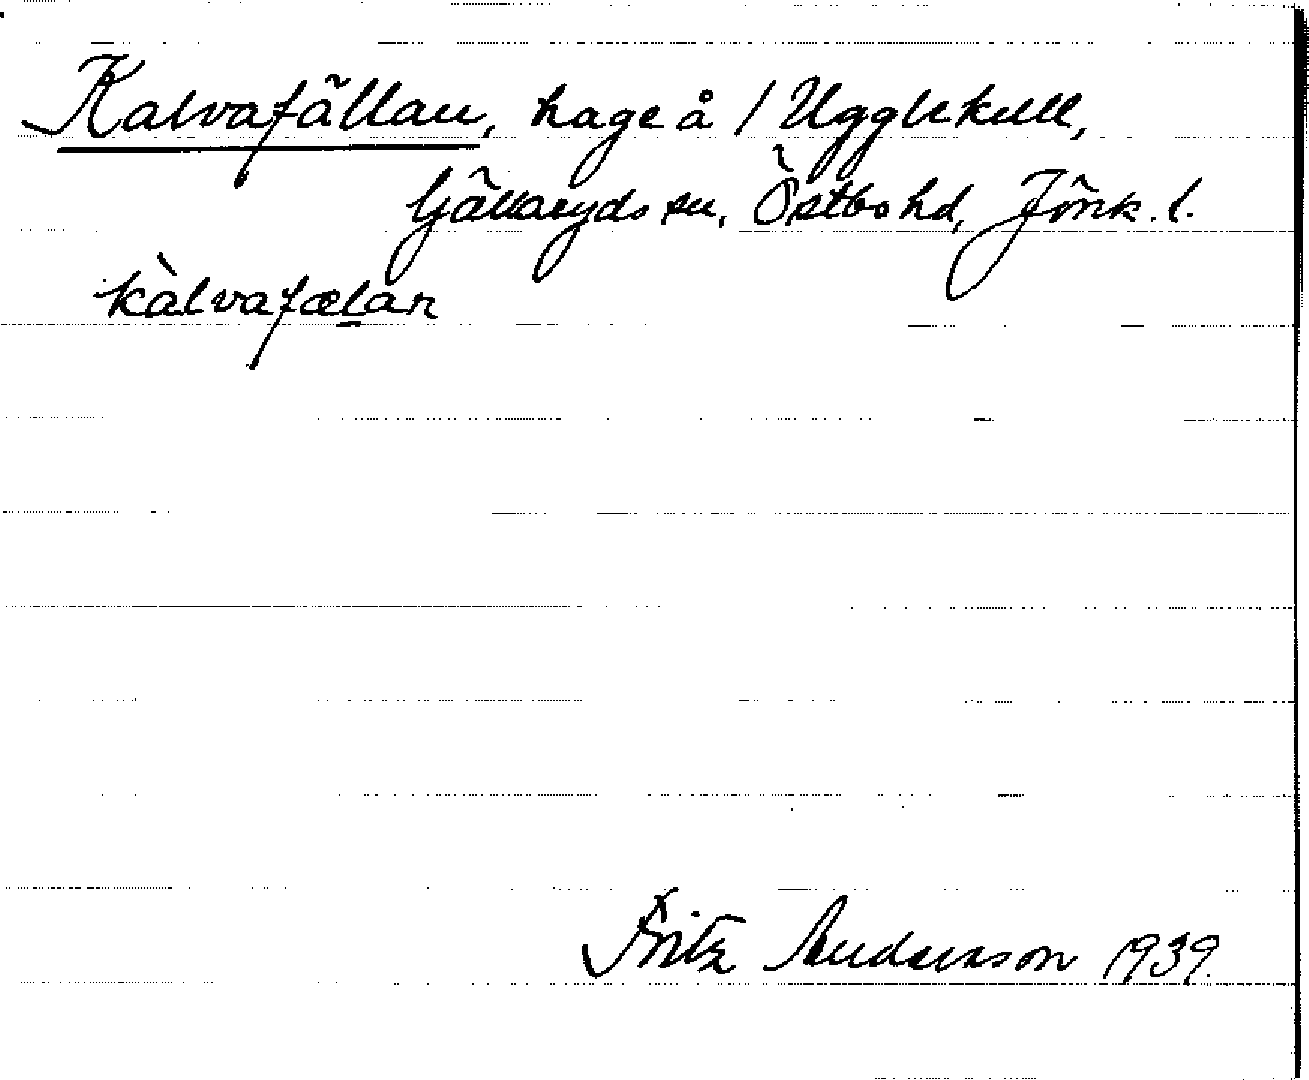 Kalvafällan, hage å 1 Ugglekull,
Gällaryds sn, Östbo hd, Jönk. l.
kàlvafælan
Fritz Andersson 1939.